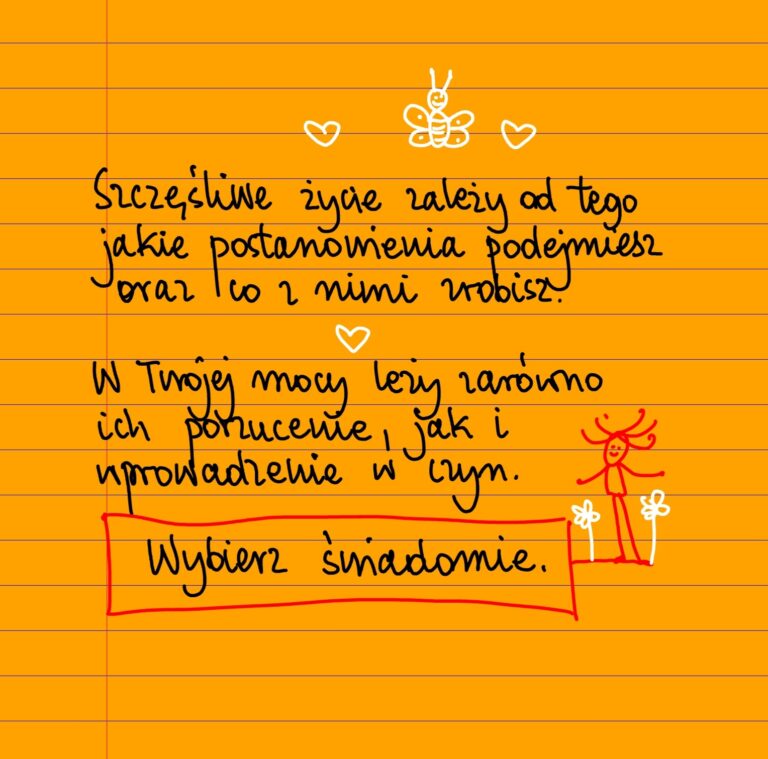 Szczęśliwe życie zależy od tego
jakie postanowienia podejmiesz
oraz co z nimi zrobisz.
W Twojej mocy leży zarówno
ich porzucenie, jak i
wprowadzenie w czyn.
Wybierz świadomie.